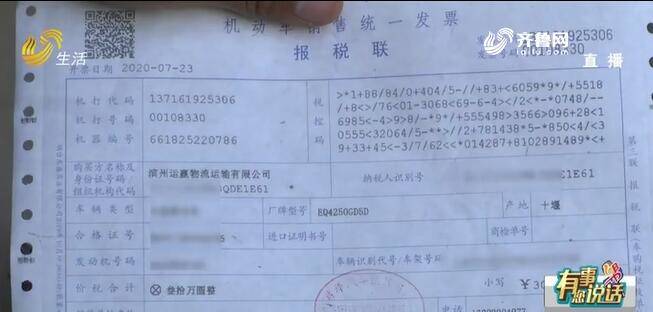 生活
机动车销售统一发票
齐鲁网
直播
报税联
开票日期 2020-07-23
机打代码 137161925306
机打号码 00108330
机器编号 661825220786
税控码
>*1+BB/84/0+404/5-//+83+<6059*9*/+5518
/+8<>/76<01-3068<69-6-4></2<*-*0748/--
6985<-4>9>8/-*9/+555498>3566>096+28<1
0555<32064/5-**>//2+781438*5-*850<4/<3
9+33+45<-3/7/62<<*014287+8102891489*<+
购买方名称及身份证号码/组织机构代码
滨州运嬴物流运输有限公司
QDE1E61
纳税人识别号
E1E61
车辆类型
厂牌型号 EQ4250GD5D
产地 十堰
合格证号
进口证明书号
商检单号
发动机号码
车辆识别代号/车架号码
价税合计 ⊗ 叁拾万圆整
小写 ￥30
电话
第三联
有事您说话